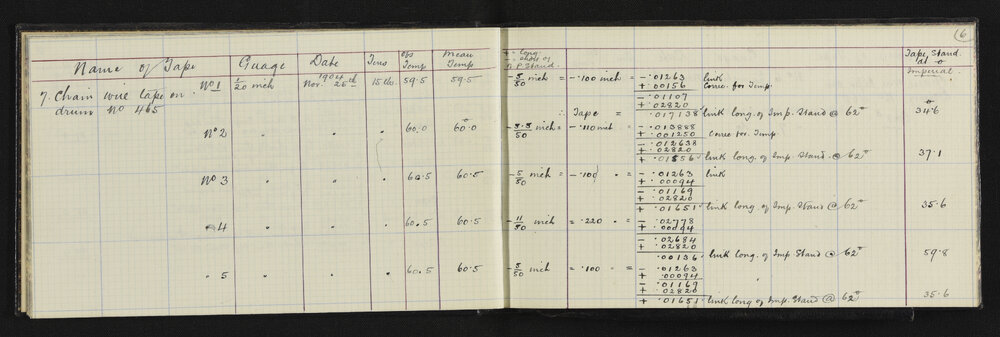 (6
Name of Tape Guage Date Tens Obs Temp Mean Temp + = long - = short of N.P. Stand. Tape Stand. at o Imperial
7. Chain wire tape on No 1 1/20 inch Nov. 1904 26th 15 lb. 59.5 59.5 - 5/50 inch = - .100 inch = - .01263 link
drum No 465 + .00156 Correc. for Temp
- .01107
+ .02820
∴ Tape = + .017138 link long of Imp. Stand @ 62° 34.6
No 2 " " " 60.0 60.0 - 5.5/50 inch = - .110 inch = - .013888
+ .001250 Correc for Temp
- .012638
+ .02820
+ .01556 link long. of Imp. Stand. @ 62° 37.1
No 3 " " " 60.5 60.5 - 5/50 inch = - .100 " = - .01263 link
+ .00094
- .01169
+ .02820
+ .01651 link long. of Imp. Stand @ 62° 35.6
" 4 " " " 60.5 60.5 - 11/50 inch = .220 " = - .02778
+ .00094
- .02684
+ .02820
.00136 link long. of Imp Stand @ 62° 59.8
" 5 " " " 60.5 60.5 - 5/50 inch = .100 " = - .01263
+ .00094 "
- .01169
+ .02820
+ .01651 link long of Imp. Stand @ 62° 35.6